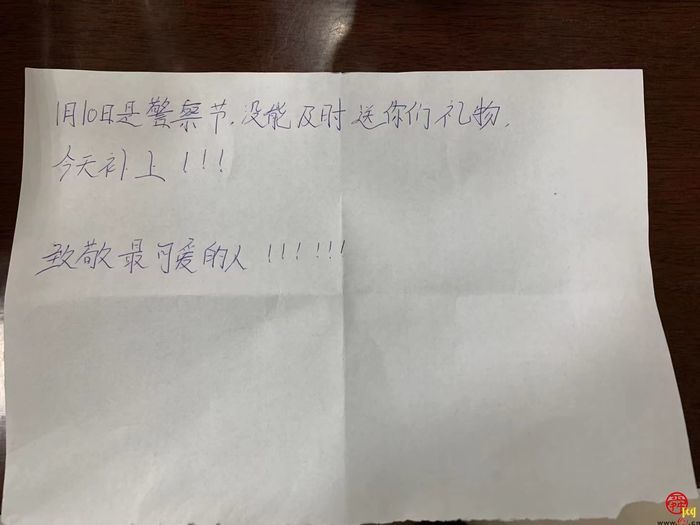 1月10日是警察节,没能及时送你们礼物,
今天补上!!!
致敬最可爱的人!!!!!!